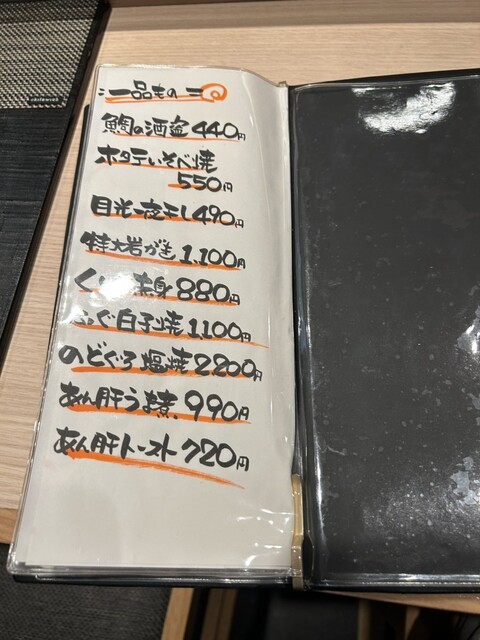 一品もの
鯛の酒盗 440円
ホタテいそべ焼
550円
目光一夜干し 490円
特大岩がき 1,100円
880円
白子焼 1,100円
のどぐろ塩焼 2,200円
あん肝うま煮 990円
あん肝トースト 720円